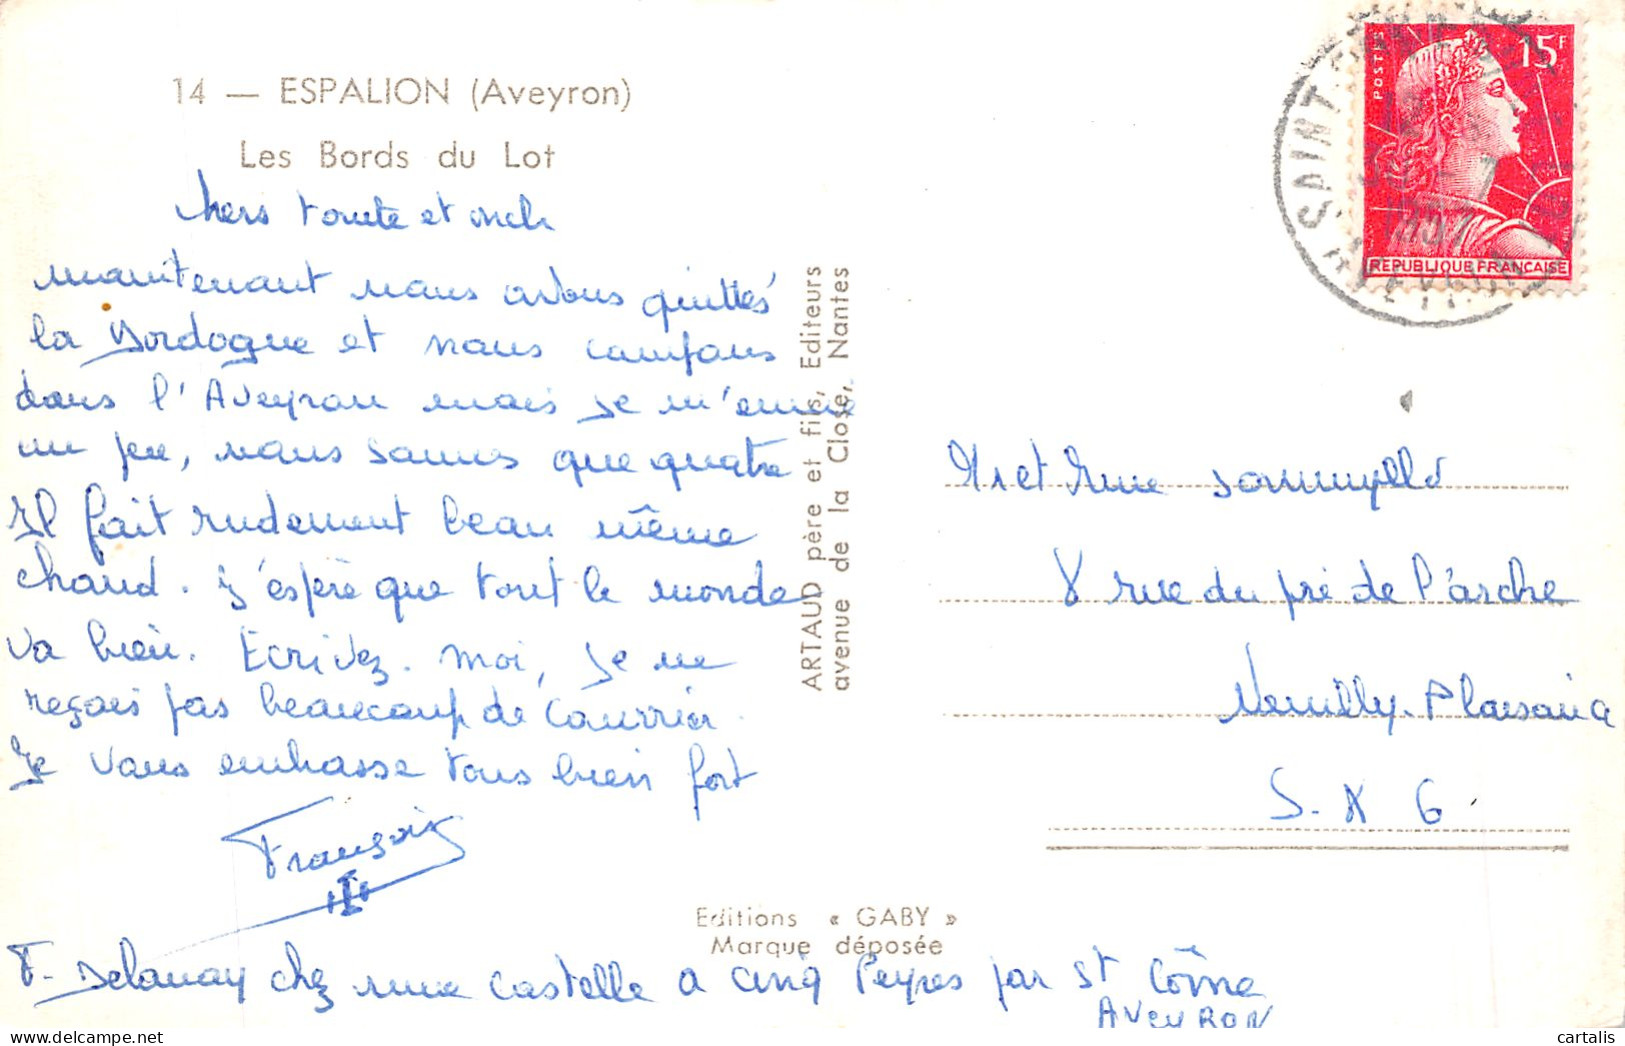 14 — ESPALION (Aveyron)
Les Bords du Lot
chers tante et oncle
maintenant nous avons quittés
la Dordogne et nous campons
dans l'Aveyron mais je m'ennuie
un peu, nous sommes que quatre
Il fait rudement beau même
chaud. J'espère que tout le monde
va bien. Ecrivez-moi, je ne
reçois pas beaucoup de courrier.
Je vous embrasse tous bien fort
François
F. Delaunay chez mme Castelle a Cinq Peyres par St Côme
AVEYRON
ARTAUD père et fils, Editeurs
avenue de la Close, Nantes
Editions « GABY »
Marque déposée
POSTES
15F
REPUBLIQUE FRANÇAISE
SAINT
AVEYRON
1957
Mr et Mme
8 rue du pré de l'arche
Neuilly-Plaisance
S. & O.
cartalis